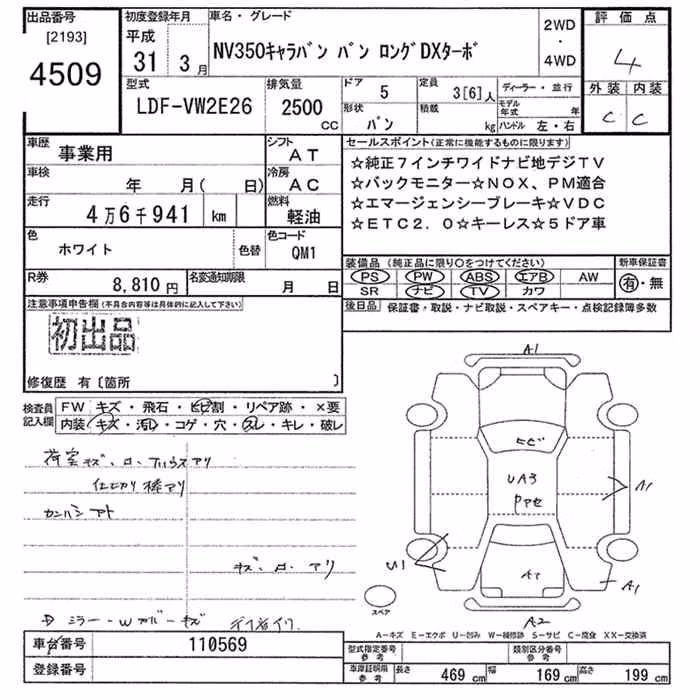 出品番号
[2193]
4509
初度登録年月
平成
31 3月
車名・グレード
NV350キャラバン バン ロングDXターボ
2WD
・
4WD
評価点
4
外装 内装
C C
型式
LDF-VW2E26
排気量
2500
CC
ドア
5
形状
バン
定員
3[6]人
積載
kg
ディーラー・並行
モデル年式 年
ハンドル 左・右
車歴
事業用
シフト
AT
車検
年 月( 日)
冷房
AC
走行
4万6千941 km
燃料
軽油
色
ホワイト
色替
色コード
QM1
R券
8,810円
名変通知期限
月 日
セールスポイント(正常に機能するものに限ります)
☆純正7インチワイドナビ地デジTV
☆バックモニター☆NOX、PM適合
☆エマージェンシーブレーキ☆VDC
☆ETC2.0☆キーレス☆5ドア車
装備品(純正品に限り○をつけてください)
PS PW ABS エアB AW
SR ナビ TV カワ
新車保証書
有・無
後日品 保証書・取説・ナビ取説・スペアキー・点検記録簿多数
注意事項申告欄(不具合内容等は具体的に記入して下さい)
初出品
修復歴 有〔箇所 〕
検査員記入欄
FW キズ・飛石・ヒビ割・リペア跡・×要
内装 キズ・汚れ・コゲ・穴・スレ・キレ・破レ
荷室キズ・ロ・アリ
仕切り棒アリ
カンバンアト
キズ・ロ・アリ
ミラー・Wカバーキズ
A1
ヒビ
UA3
A1
U1
A1
A2
スペア
A-キズ E-エクボ U-凹み W-補修跡 S-サビ C-腐食 XX-交換済
車台番号
110569
登録番号
型式指定番号
参考
類別区分番号
参考
車庫証明用
参考
長さ 469 cm 幅 169 cm 高さ 199 cm